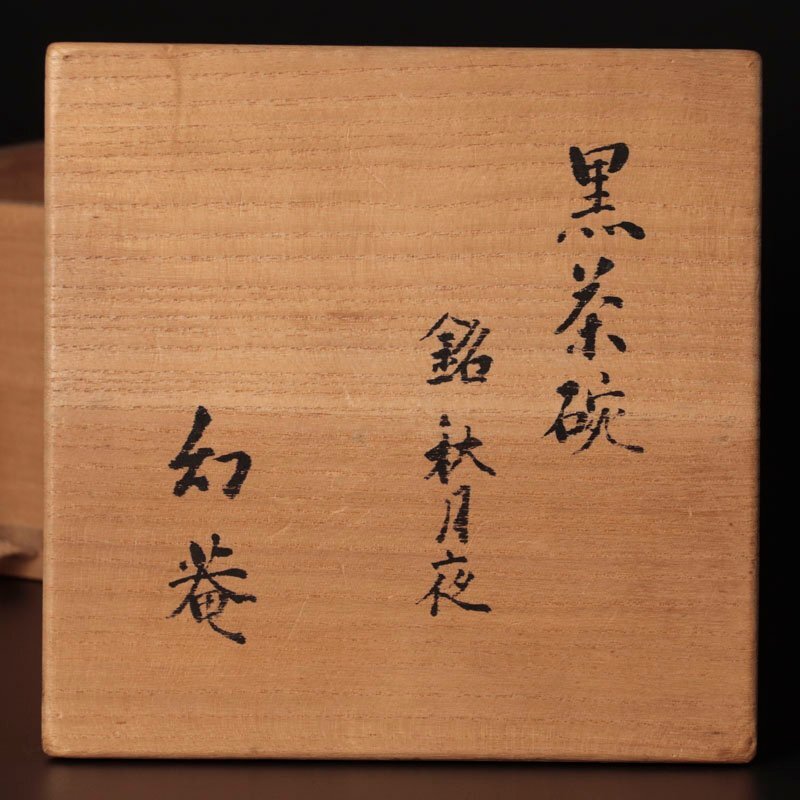 黒茶碗
銘 秋月夜
幻菴